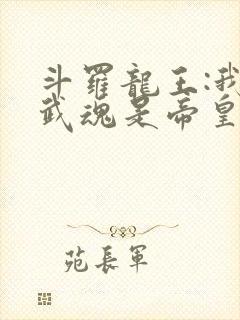 斗羅龍王:我
武魂是帝皇
苑長軍